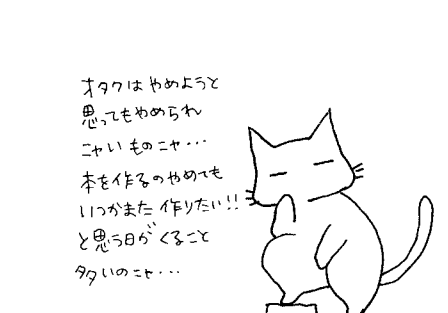 オタクはやめようと
思ってもやめられ
ニャいものニャ・・・
本を作るのやめても
いつかまた作りたい!!
と思う日がくること
多いのニャ・・・